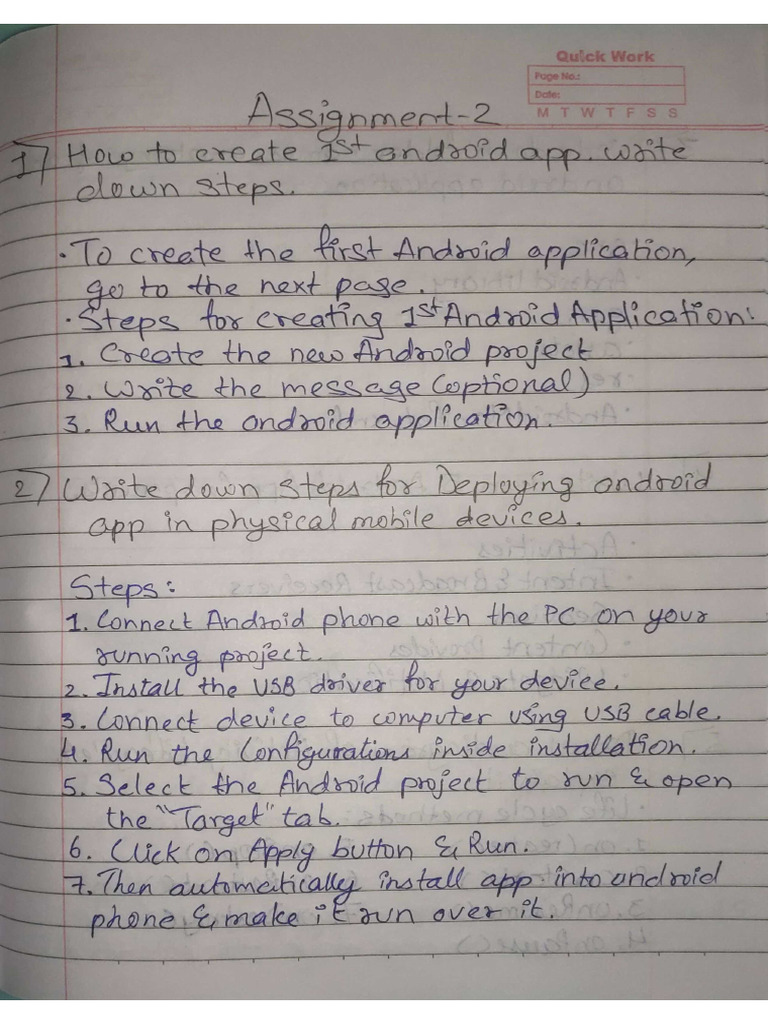 Quick Work
Page No.:
Date:
M T W T F S S
Assignment-2
1) How to create 1st android app. write
down steps.
• To create the first Android application,
go to the next page.
• Steps for creating 1st Android Application:
1. Create the new Android project
2. Write the message (optional)
3. Run the android application.
2) Write down steps for Deploying android
app in physical mobile devices.
Steps:
1. Connect Android phone with the PC on your
running project.
2. Install the USB driver for your device.
3. Connect device to computer using USB cable.
4. Run the Configurations inside installation.
5. Select the Android project to run & open
the "Target" tab.
6. Click on Apply button & Run.
7. Then automatically install app into android
phone & make it run over it.